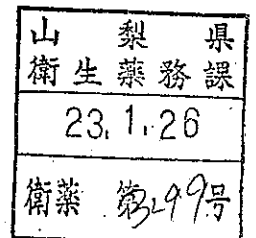 山梨県
衛生薬務課
23.1.26
衛薬 第3299号